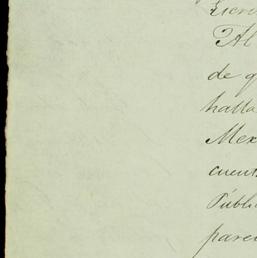 Al
de q
halla
Mex
cuent
Públi
parec